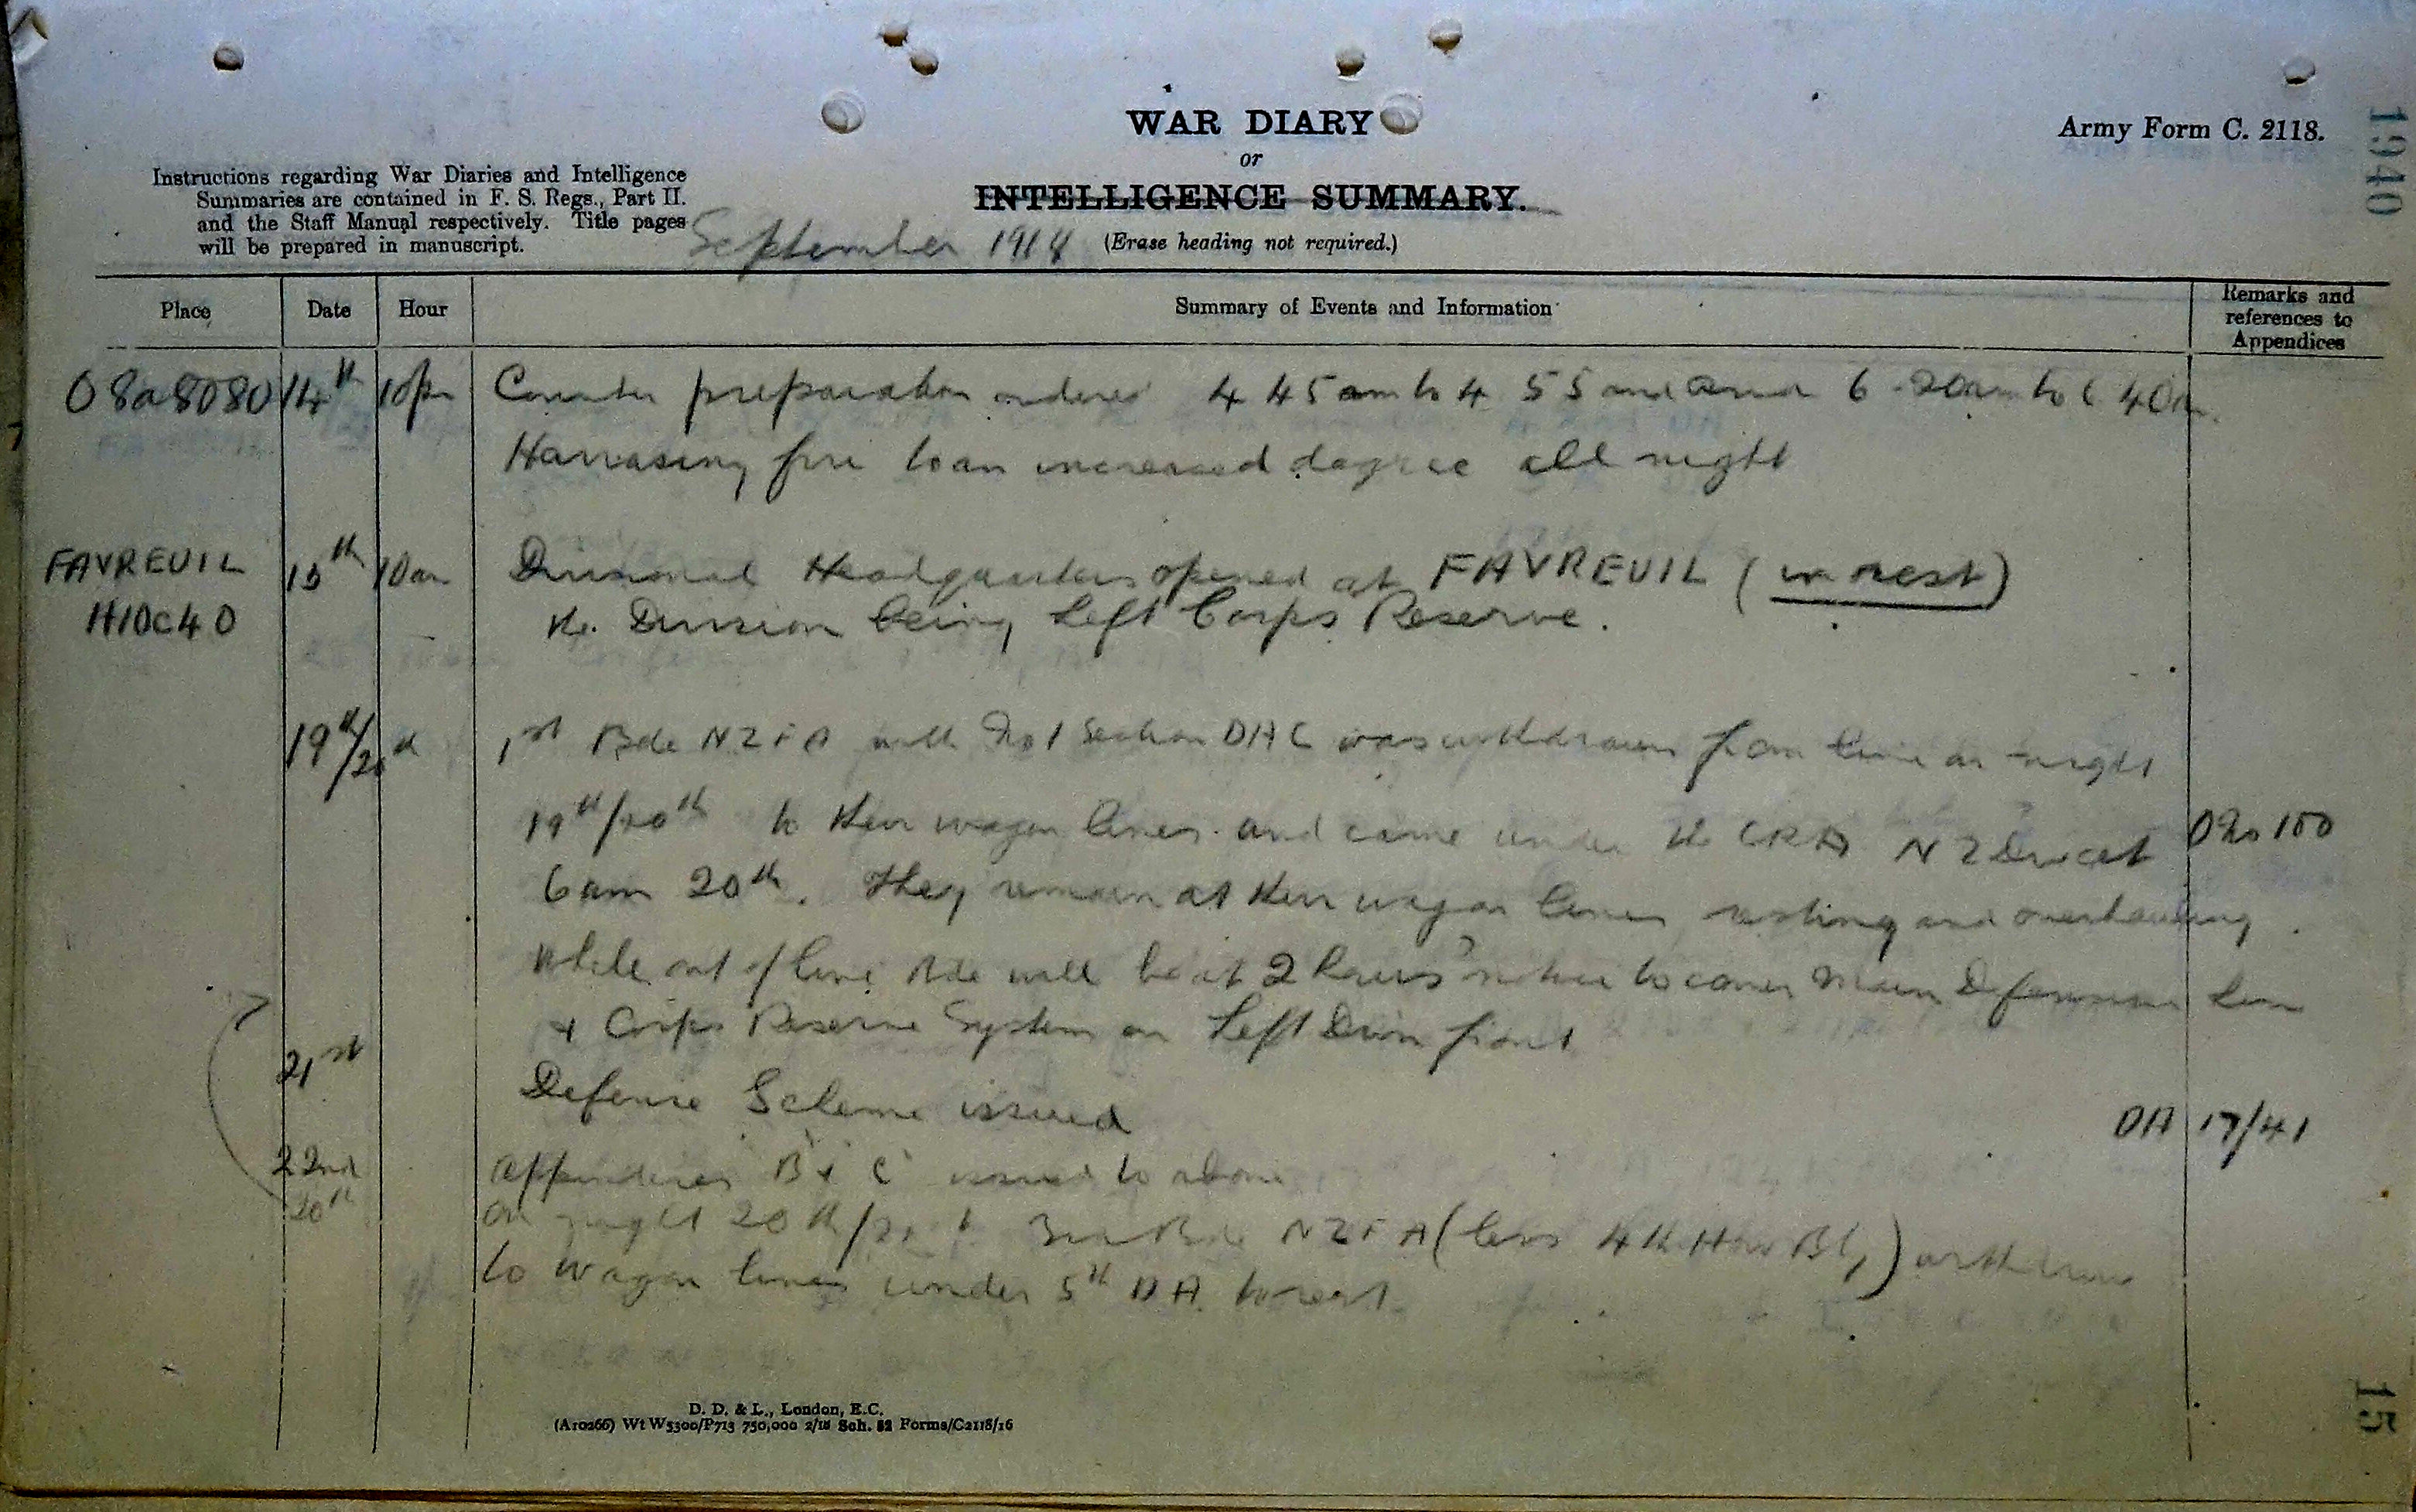 WAR DIARY
or
INTELLIGENCE SUMMARY.
(Erase heading not required.)
Army Form C. 2118.
1940
Instructions regarding War Diaries and Intelligence
Summaries are contained in F. S. Regs., Part II.
and the Staff Manual respectively. Title pages
will be prepared in manuscript.
September 1918
Place Date Hour Summary of Events and Information Remarks and references to Appendices
O8a8080 14th 10pm Counter preparation ordered 4 45am to 4 55 and 6-20am to 6 40am.
Harrasing fire to an increased degree all night
FAVREUIL 15th 10am Divisional Headquarters opened at FAVREUIL (in rest)
H10c40 the Division being Left Corps Reserve.
19th/20th 1st Bde NZFA with No 1 Section DAC was withdrawn from line on night
19th/20th to their wagon lines and came under the CRA NZ Div at O No 100
6am 20th. They remain at their wagon lines resting and overhauling.
While out of line Bde will be at 2 hours' notice to cover Main Defensive Line
+ Corps Reserve System on Left Divn front
21st Defense Scheme issued DA 17/41
22nd Appendices B + C issued to above
20th On night 20th/21st 3rd Bde NZFA (less 4th How Bty) withdrew
to wagon lines under 5th DA to rest.
D. D. & L., London, E.C.
(A10266) Wt W5300/P713 750,000 2/18 Sch. 52 Forms/C2118/16
15